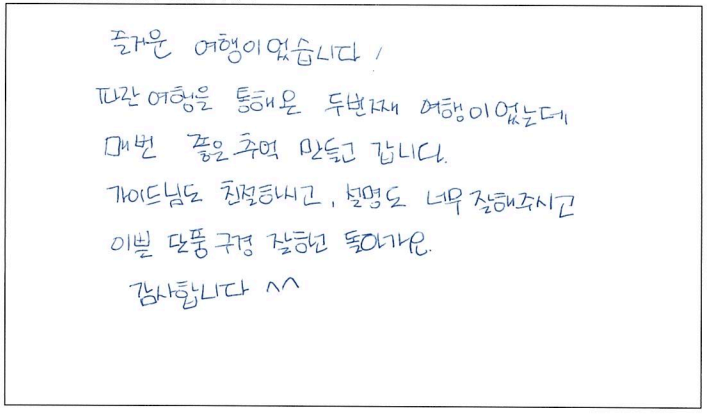 즐거운 여행이었습니다!
따란여행을 통해온 두번째 여행이었는데
매번 좋은추억 만들고 갑니다.
가이드님도 친절하시고, 설명도 너무 잘해주시고
이쁜 단풍구경 잘하고 돌아가요.
감사합니다 ^^